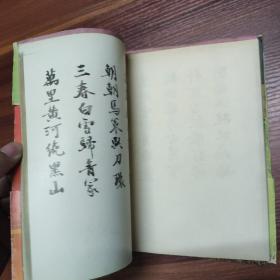 朝朝馬策與刀環
三春白雪歸青冢
萬里黃河繞黑山